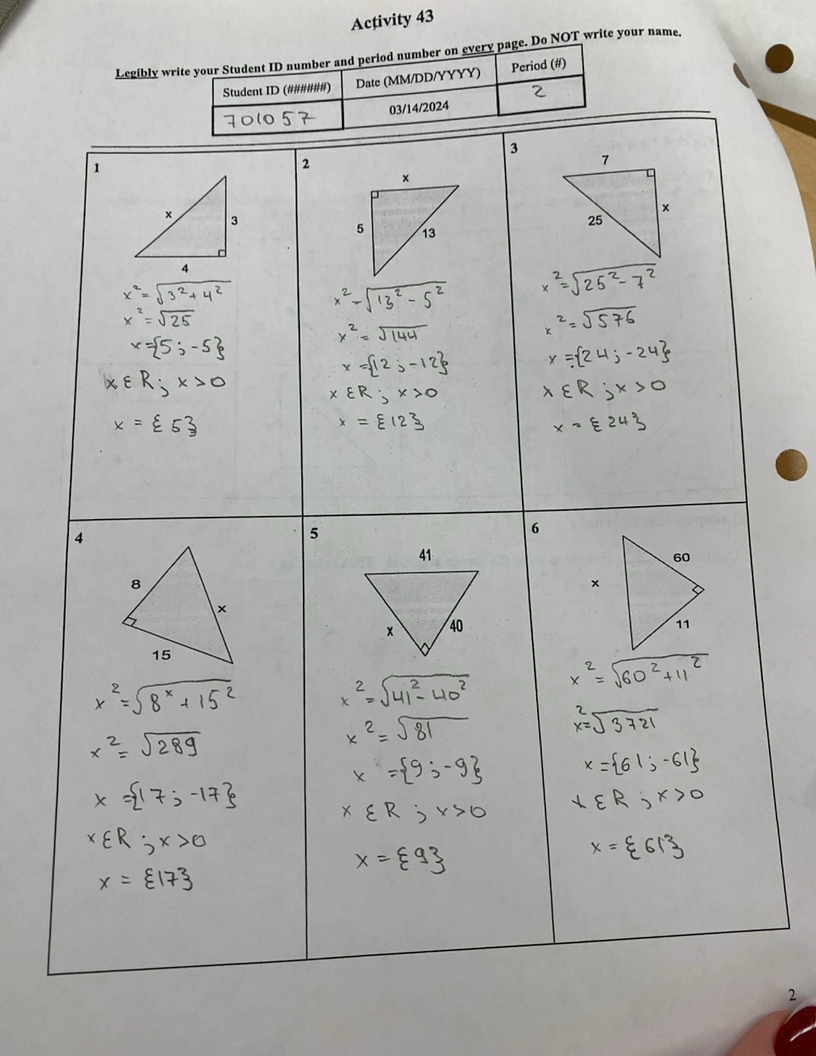 Activity 43
Legibly write your Student ID number and period number on every page. Do NOT write your name.
Student ID (######) Date (MM/DD/YYYY) Period (#)
701057 03/14/2024 2
1
x
3
4
x²=√3²+4²
x²=√25
x={5;-5}
xεR; x>0
x = {5}
2
x
5
13
x²=√13²-5²
x²=√144
x={12;-12}
xεR; x>0
x = {12}
3
7
25
x
x²=√25²-7²
x²=√576
x={24;-24}
xεR; x>0
x = {24}
4
8
x
15
x²=√8ˣ+15²
x²=√289
x={17;-17}
xεR; x>0
x = {17}
5
41
x
40
x²=√41²-40²
x²=√81
x={9;-9}
xεR; x>0
x = {9}
6
60
x
11
x²=√60²+11²
x²=√3721
x={61;-61}
xεR; x>0
x = {61}
2